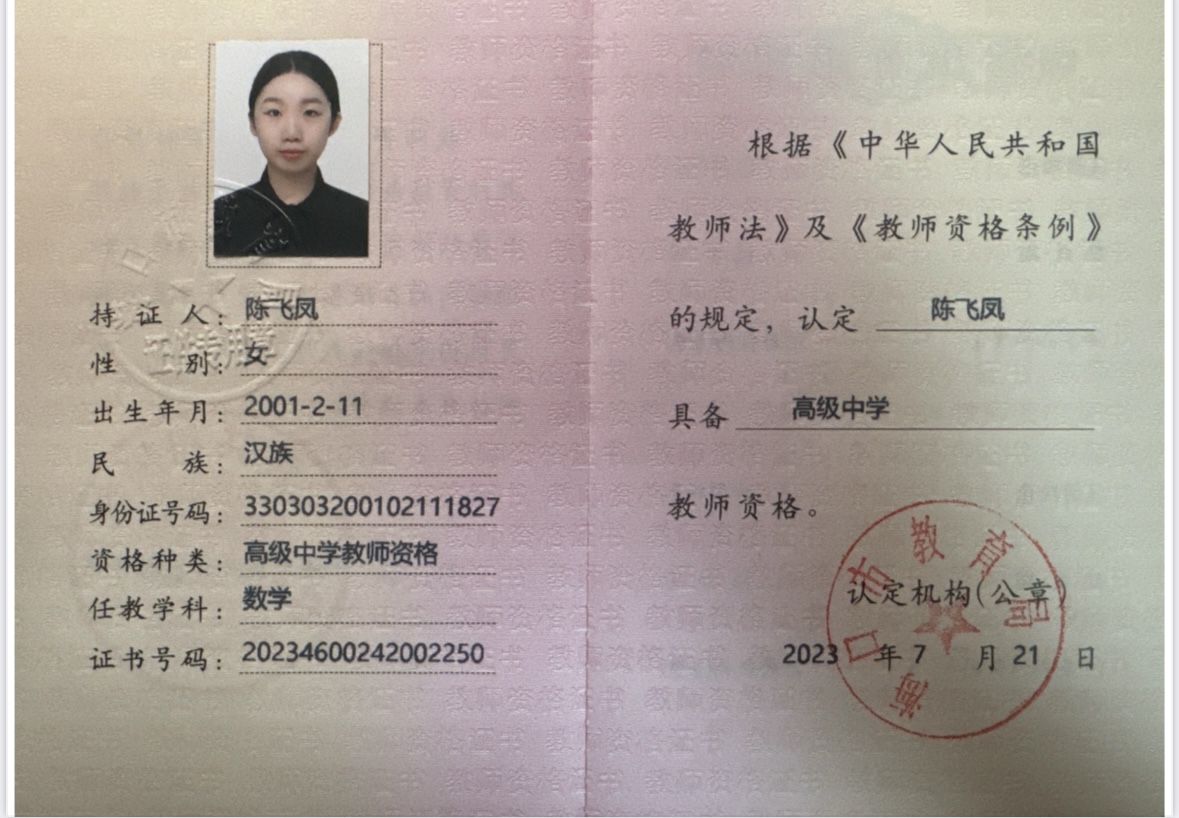 持证人：陈飞凤
性别：女
出生年月：2001-2-11
民族：汉族
身份证号码：330303200102111827
资格种类：高级中学教师资格
任教学科：数学
证书号码：20234600242002250
根据《中华人民共和国
教师法》及《教师资格条例》
的规定，认定 陈飞凤
具备 高级中学
教师资格。
认定机构(公章)
2023 年 7 月 21 日
海口市教育局